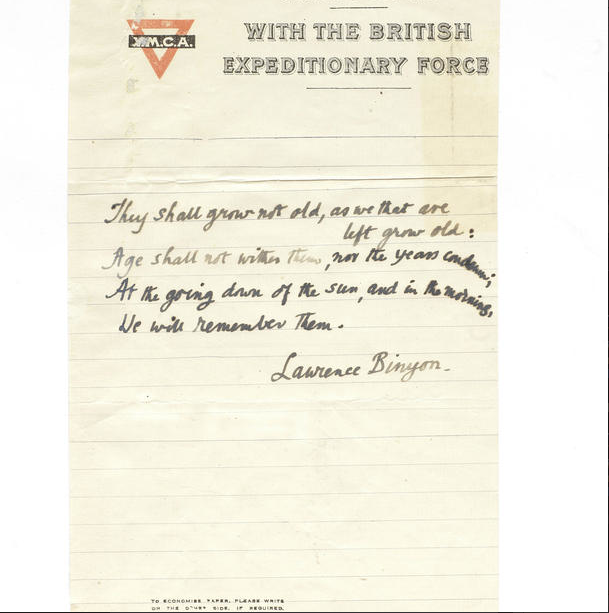 Y.M.C.A.
WITH THE BRITISH
EXPEDITIONARY FORCE
They shall grow not old, as we that are
left grow old:
Age shall not wither them, nor the years condemn;
At the going down of the sun, and in the morning,
We will remember them.
Lawrence Binyon.
TO ECONOMISE PAPER, PLEASE WRITE
ON THE OTHER SIDE, IF REQUIRED.